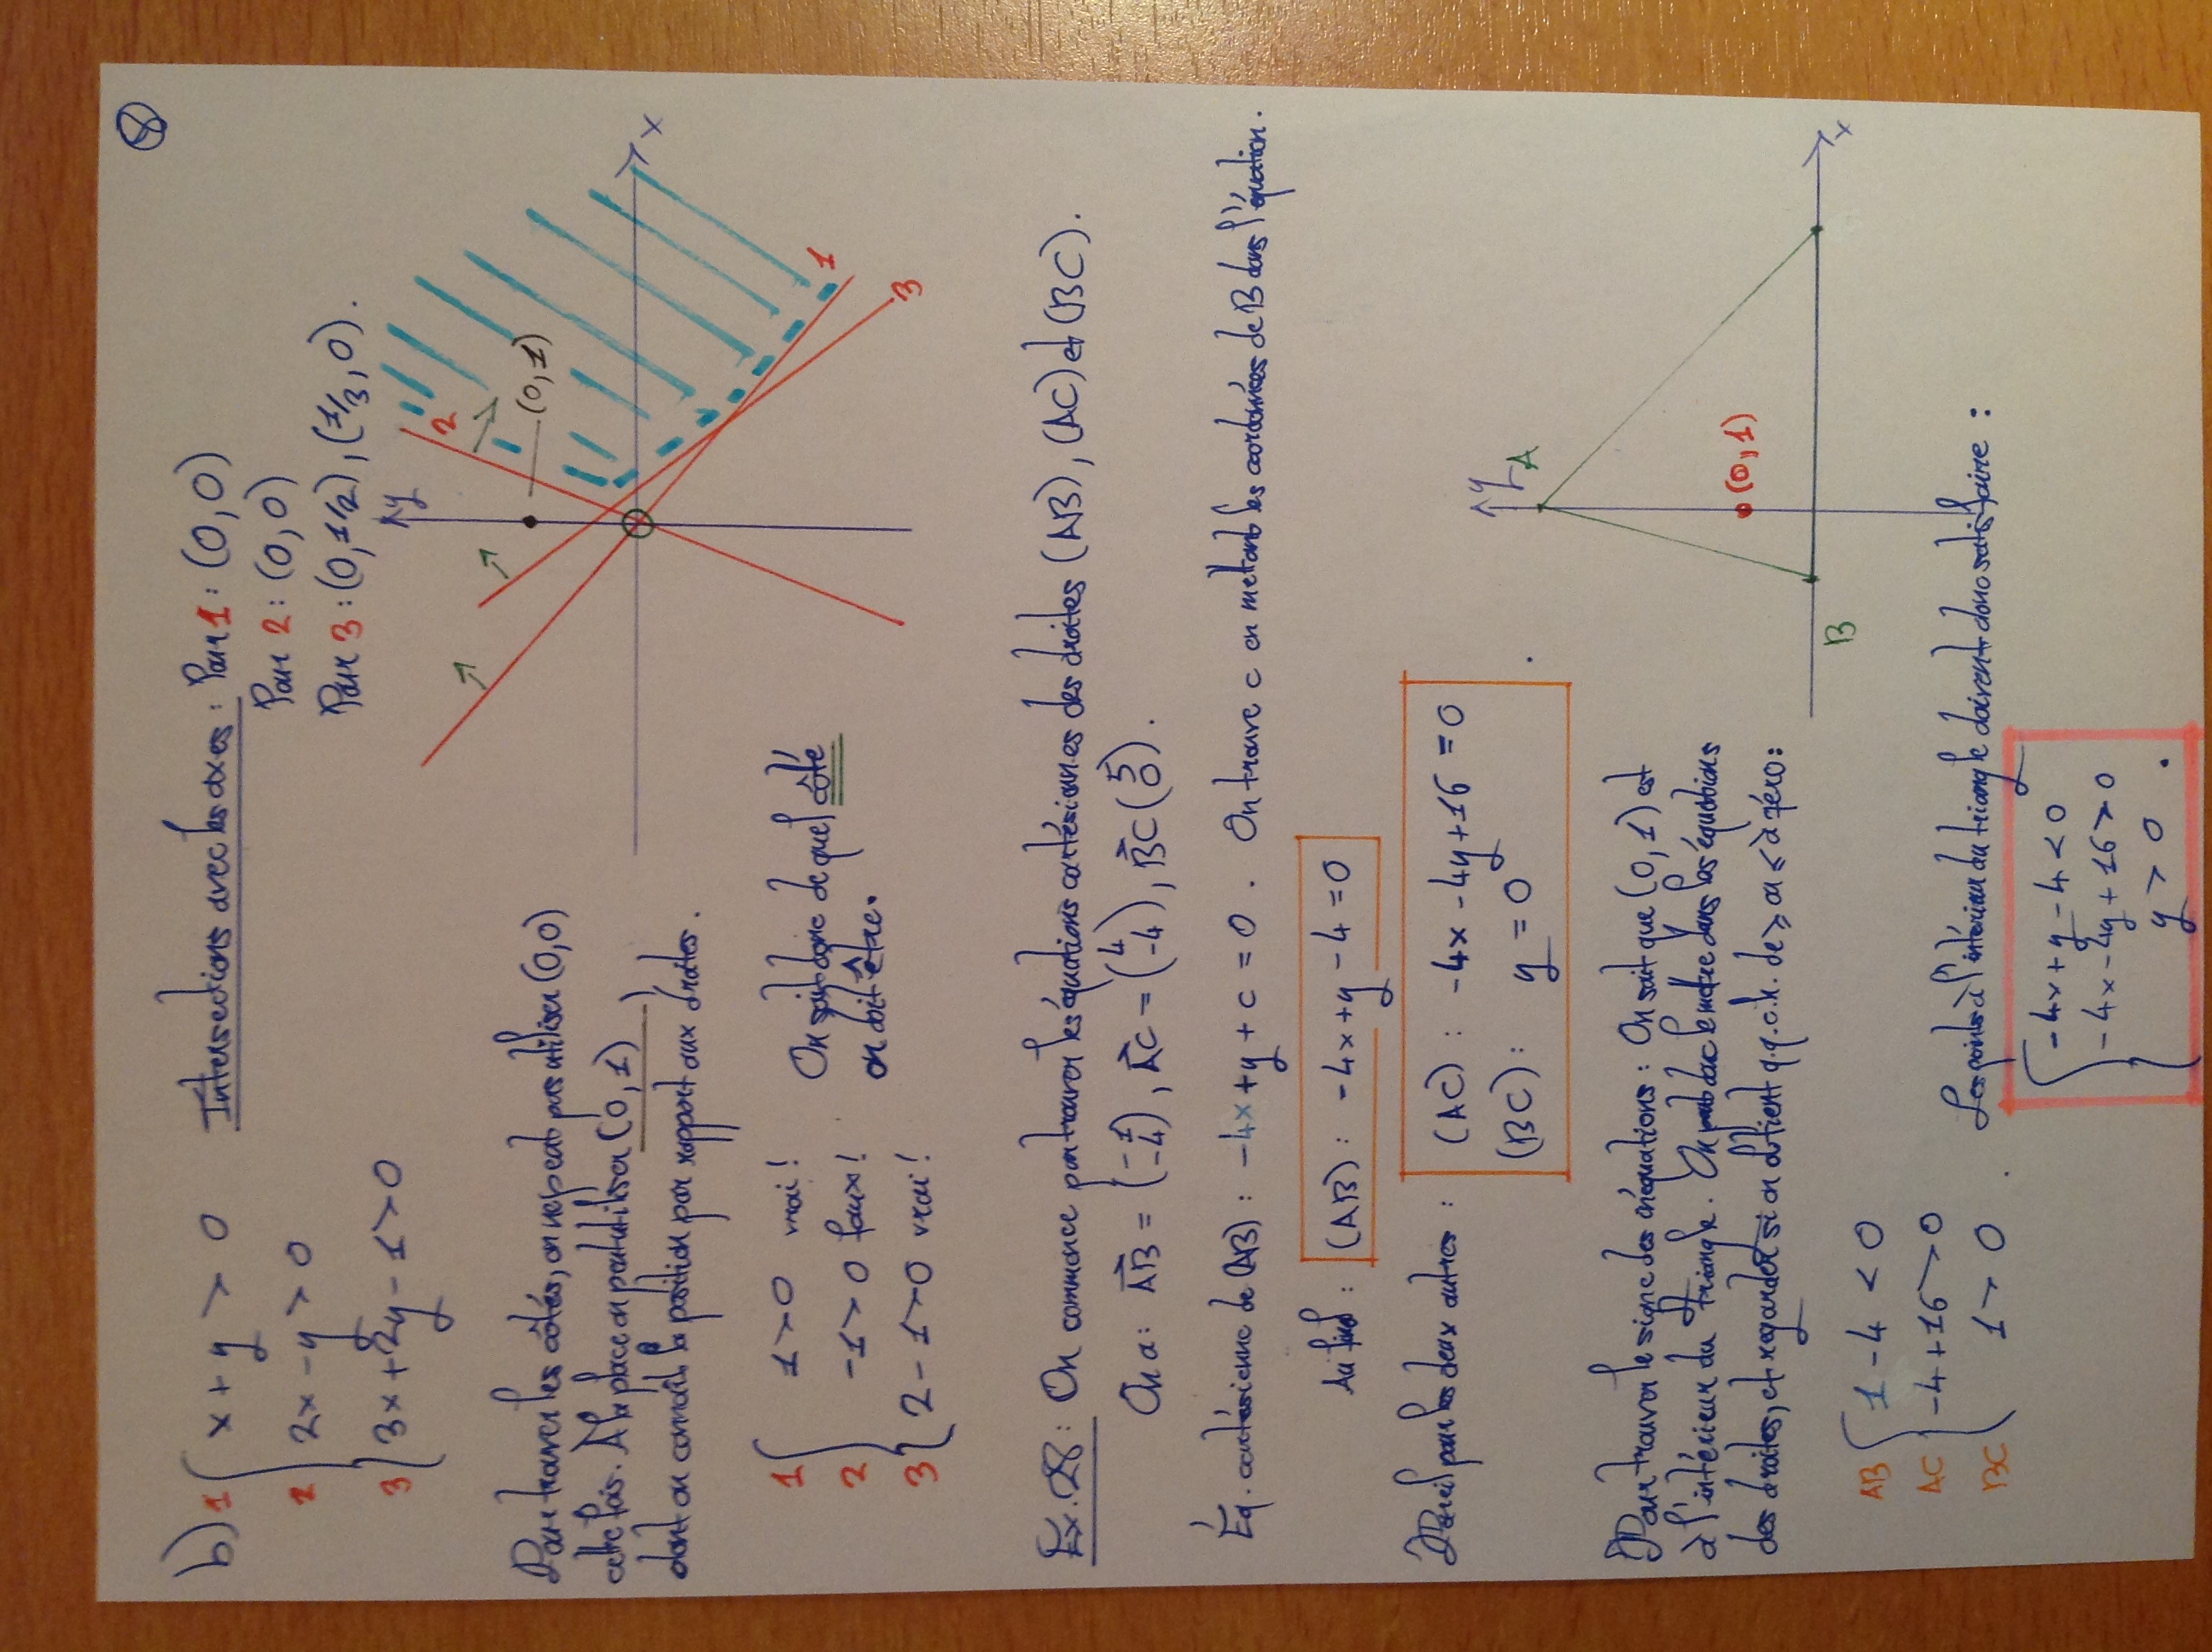 8
b) 1 x + y > 0 Intersections avec les axes : Pour 1 : (0,0)
2 2x - y > 0 Pour 2 : (0,0)
3 3x + 2y - 1 > 0 Pour 3 : (0,1/2), (1/3, 0).
y
2
(0,1)
x
1
3
Pour trouver les côtés, on ne peut pas utiliser (0,0)
cette fois. À la place on peut utiliser (0,1),
dont on connaît la position par rapport aux droites.
1 1 > 0 vrai !
2 -1 > 0 faux !
3 2 - 1 > 0 vrai !
On sait donc de quel côté
on doit être.
Ex. 28 : On commence par trouver les équations cartésiennes des droites (AB), (AC) et (BC).
On a : AB = (-1 -4), AC = (4 -4), BC (5 0).
Éq. cartésienne de (AB) : -4x + y + c = 0 . On trouve c en mettant les coordonnées de B dans l'équation.
Au final : (AB) : -4x + y - 4 = 0
Pareil pour les deux autres : (AC) : -4x - 4y + 16 = 0
(BC) : y = 0 .
Pour trouver le signe des inéquations : On sait que (0,1) est
à l'intérieur du triangle. On peut donc le mettre dans les équations
des droites, et regarder si on obtient q.q.c.h. de ≥ ou ≤ à zéro :
y
A
(0,1)
B
x
AB 1 - 4 < 0
AC -4 + 16 > 0
BC 1 > 0 .
Les points à l'intérieur du triangle doivent donc satisfaire :
-4x + y - 4 < 0
-4x - 4y + 16 > 0
y > 0 .